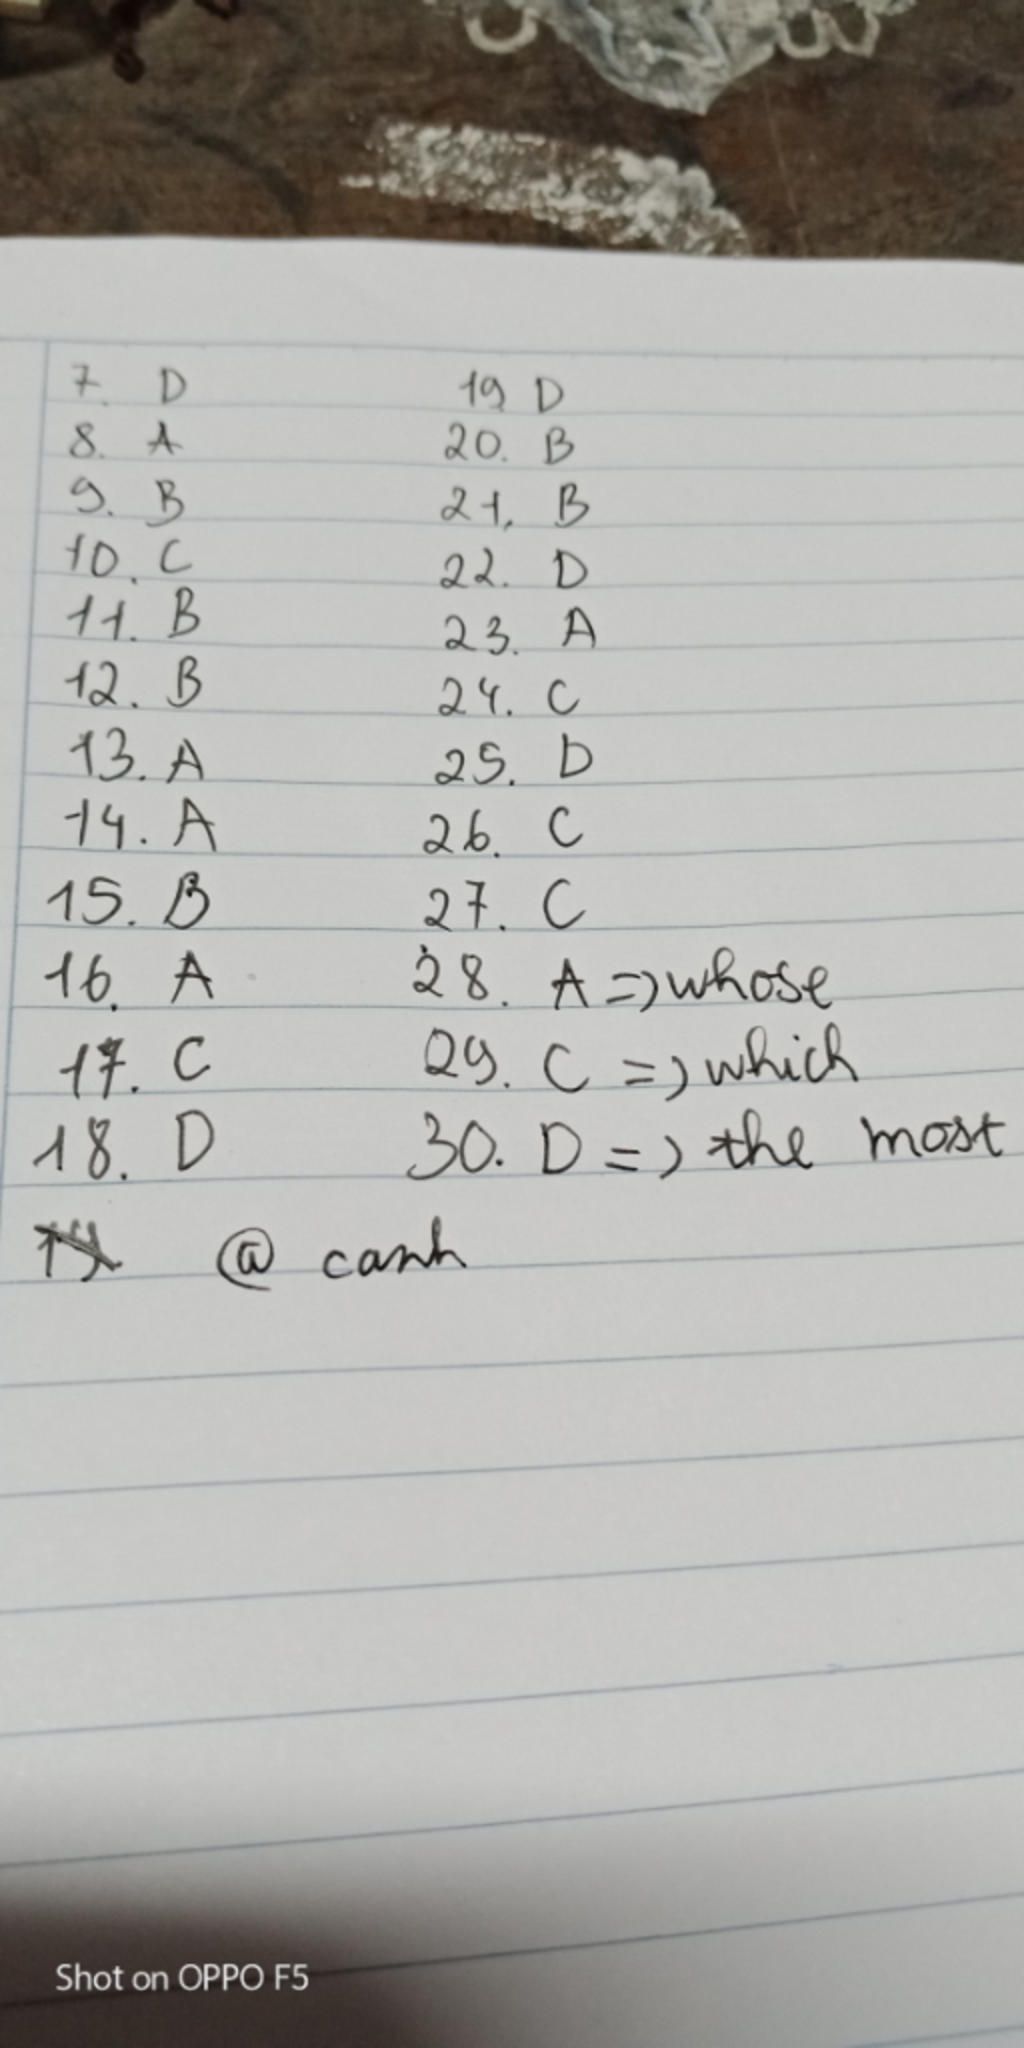 7. D
8. A
9. B
10. C
11. B
12. B
13. A
14. A
15. B
16. A
17. C
18. D
19 D
20. B
21. B
22. D
23. A
24. C
25. D
26. C
27. C
28. A => whose
29. C => which
30. D => the most
@ canh
Shot on OPPO F5